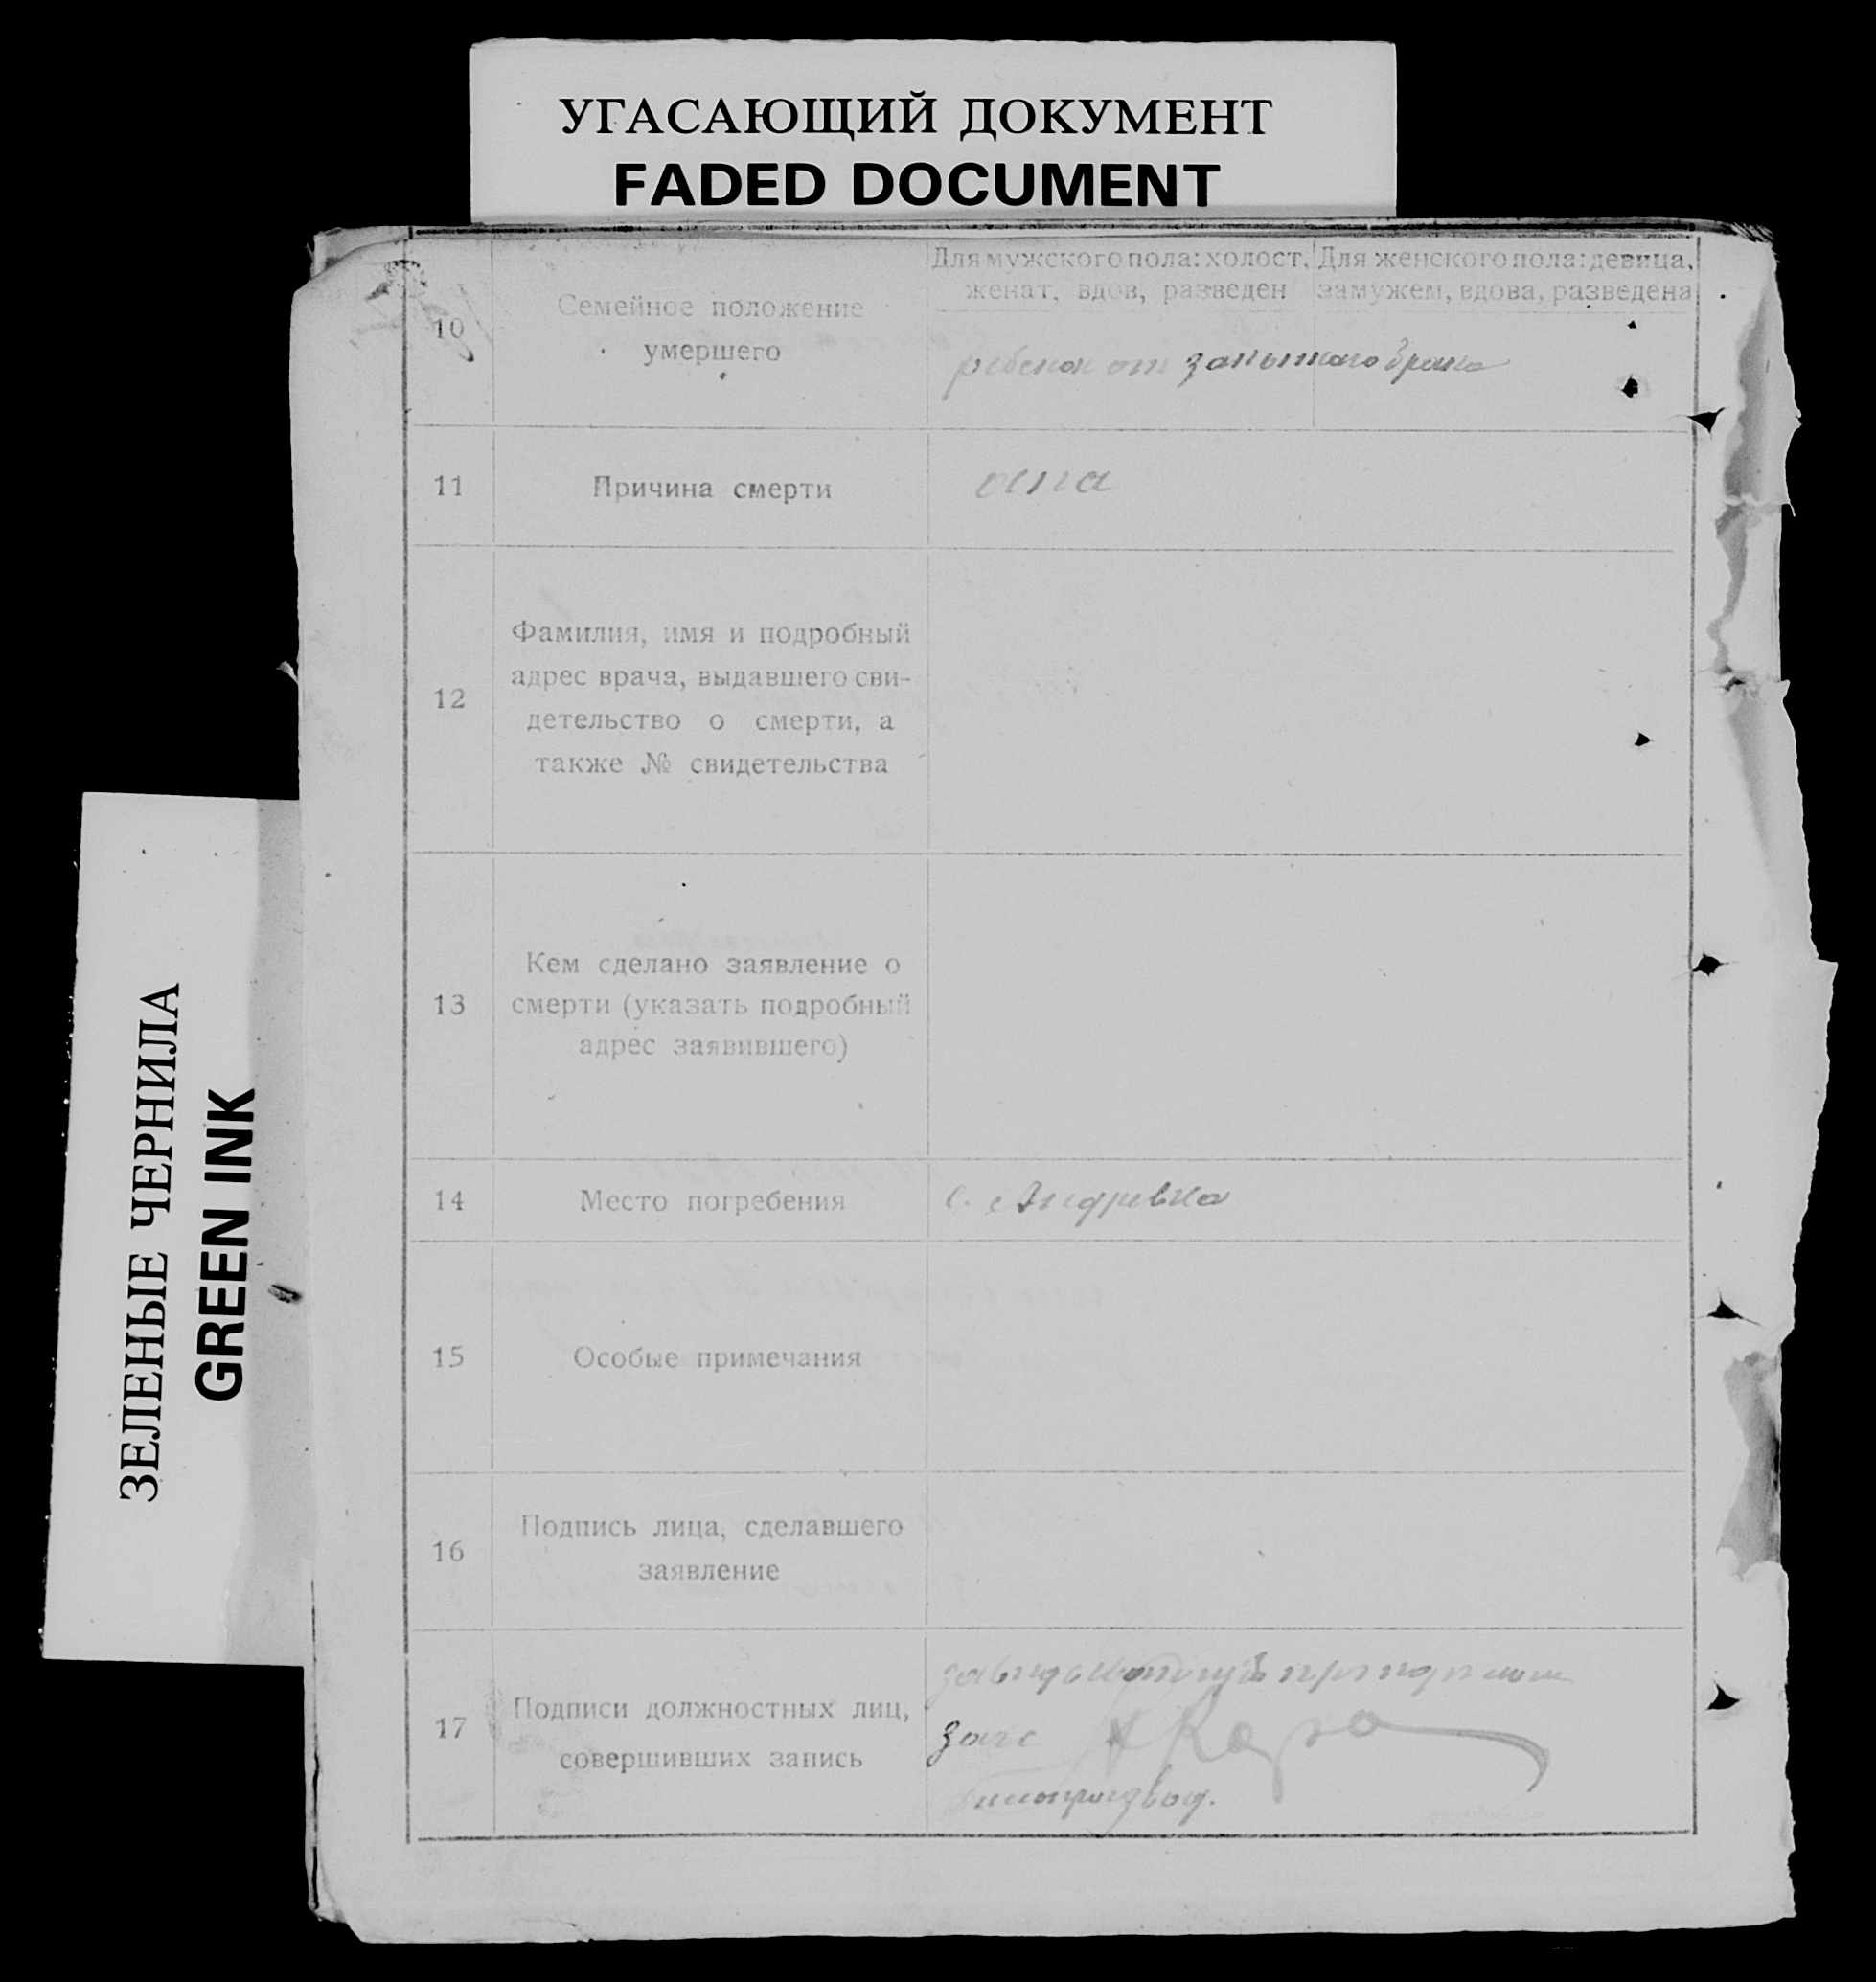 УГАСАЮЩИЙ ДОКУМЕНТ
FADED DOCUMENT
ЗЕЛЕНЫЕ ЧЕРНИЛА
GREEN INK
10
Семейное положение
умершего
Для мужского пола: холост,
женат, вдов, разведен
Для женского пола: девица,
замужем, вдова, разведена
ребенок от законного брака
11
Причина смерти
оспа
12
Фамилия, имя и подробный
адрес врача, выдавшего сви-
детельство о смерти, а
также № свидетельства
13
Кем сделано заявление о
смерти (указать подробный
адрес заявившего)
14
Место погребения
с. Андревка
15
Особые примечания
16
Подпись лица, сделавшего
заявление
17
Подписи должностных лиц,
совершивших запись
загс